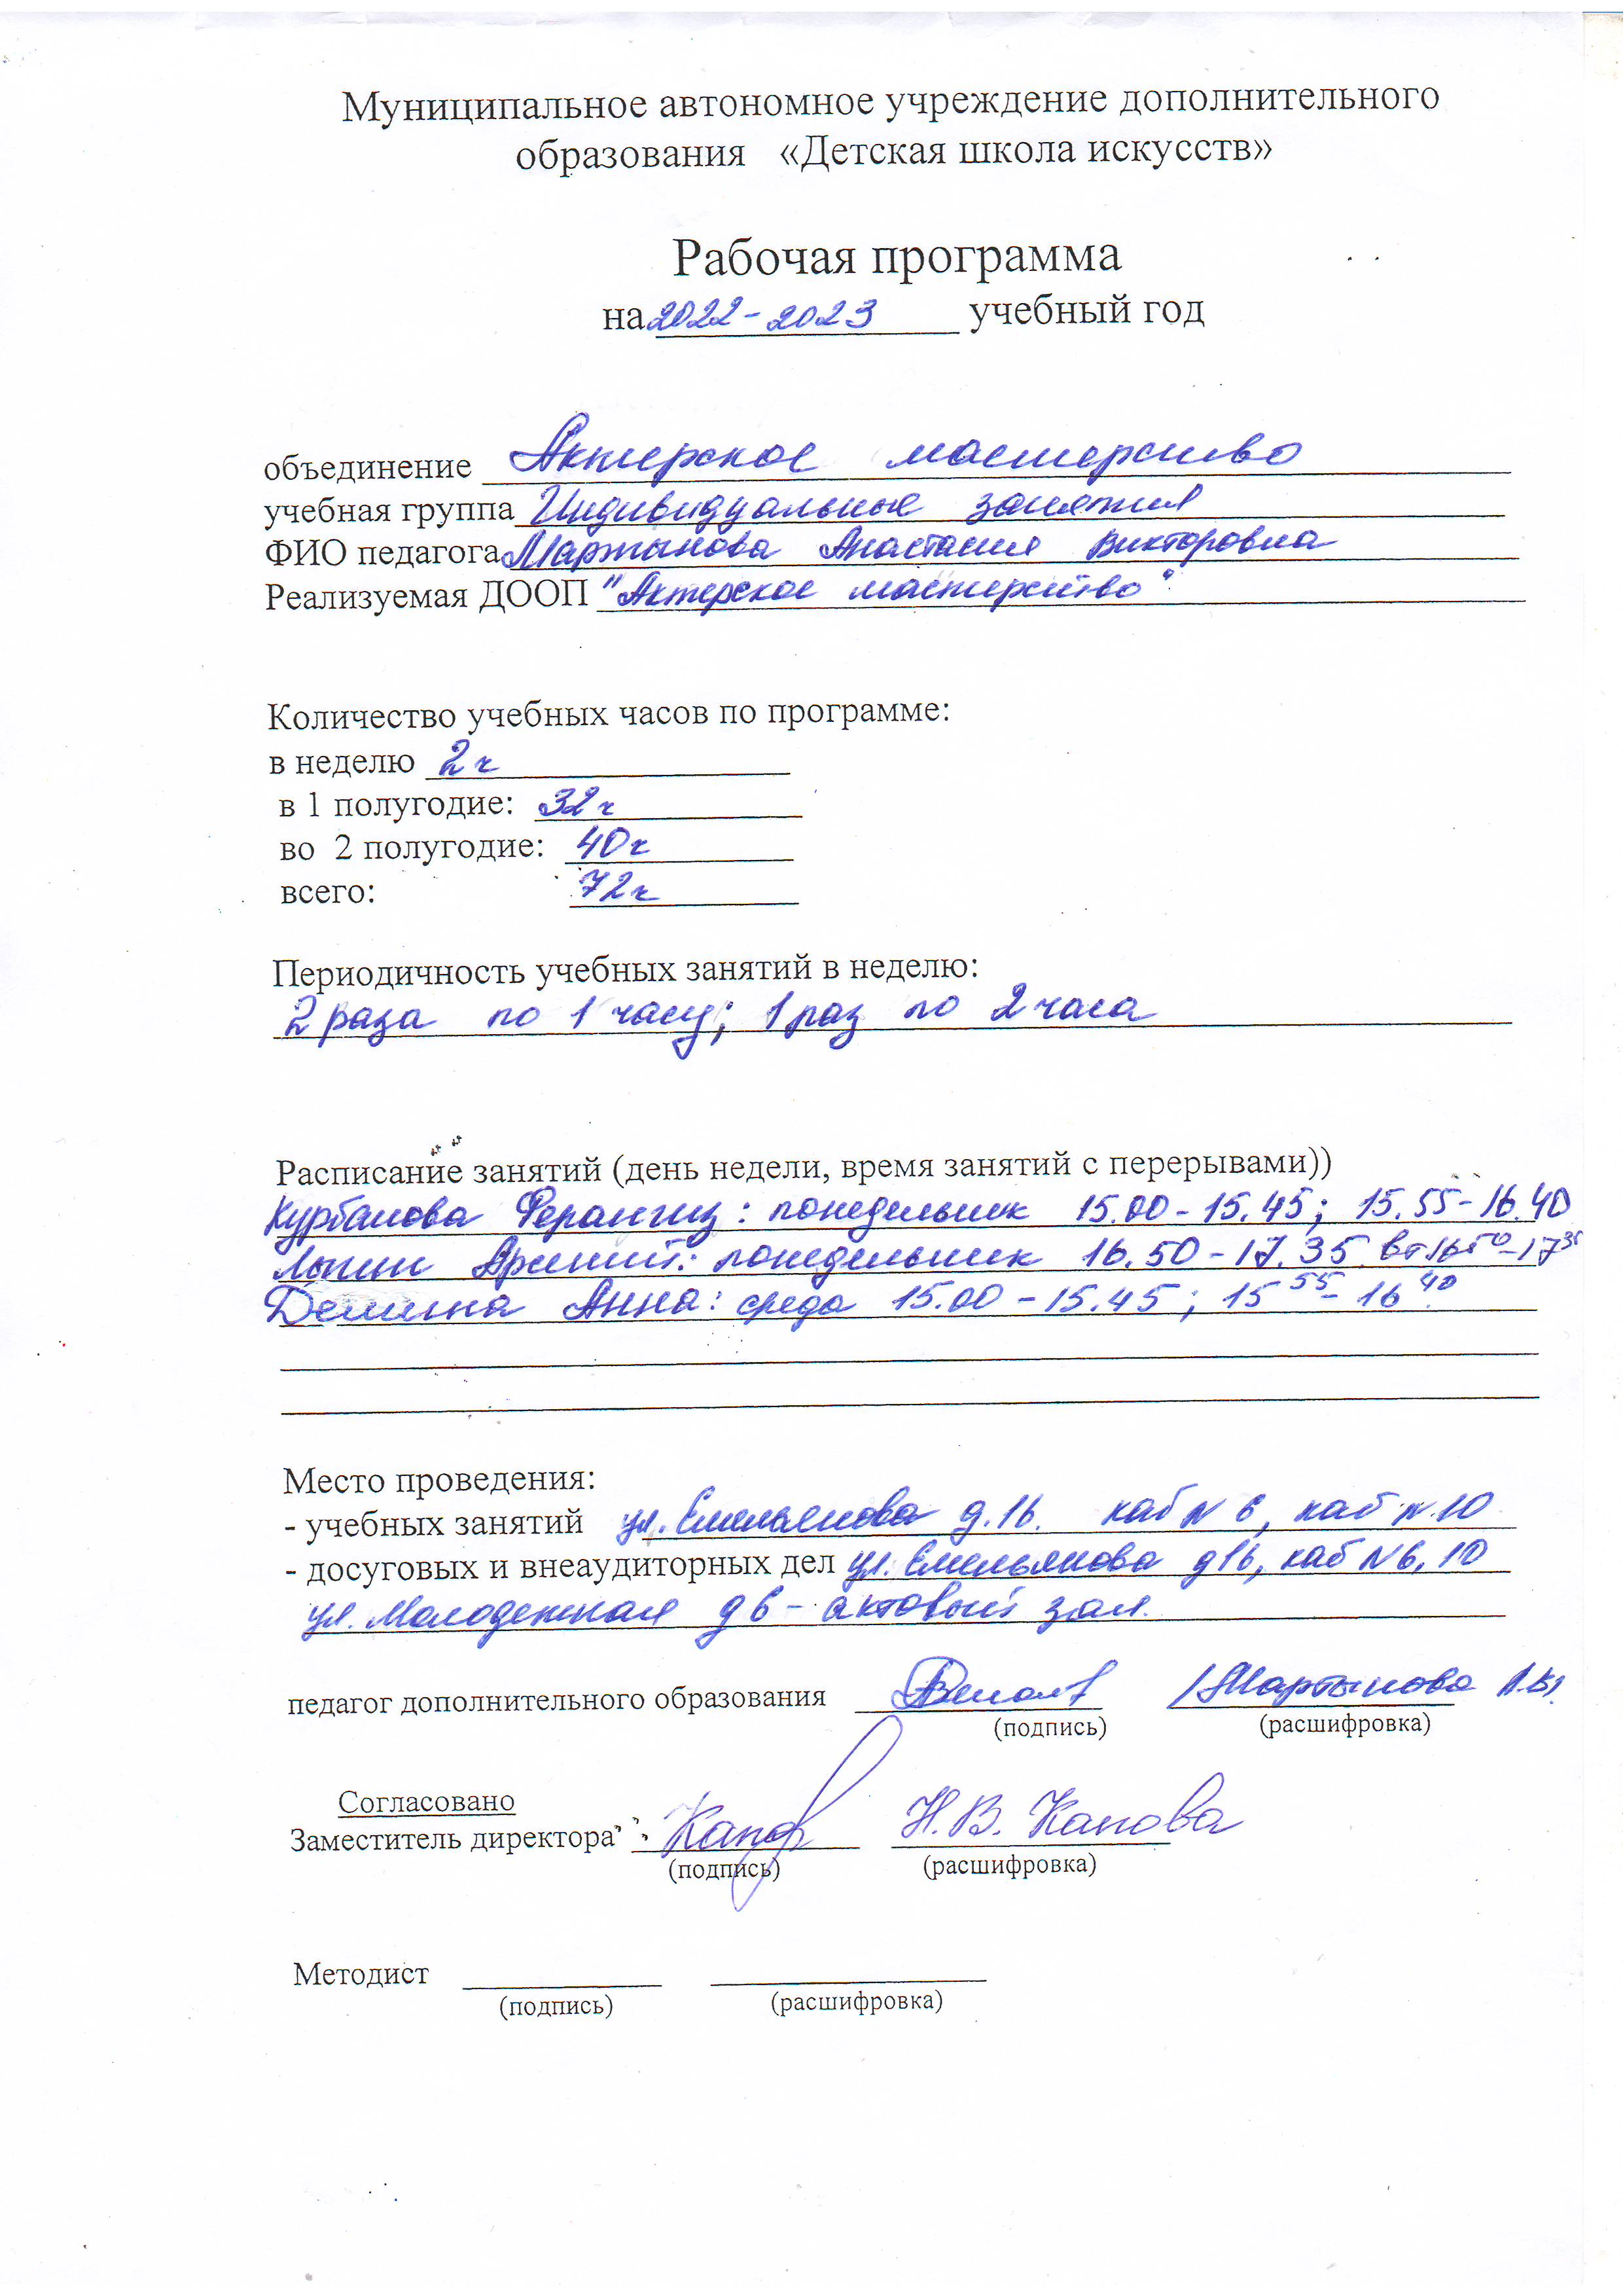 Муниципальное автономное учреждение дополнительного
образования «Детская школа искусств»
Рабочая программа
на 2022-2023 учебный год
объединение Актерское мастерство
учебная группа Индивидуальные занятия
ФИО педагога Мартынова Анастасия Викторовна
Реализуемая ДООП "Актерское мастерство"
Количество учебных часов по программе:
в неделю 2 ч
в 1 полугодие: 32 ч
во 2 полугодие: 40 ч
всего: 72 ч
Периодичность учебных занятий в неделю:
2 раза по 1 часу; 1 раз по 2 часа
Расписание занятий (день недели, время занятий с перерывами))
Курбанова Ферангиз: понедельник 15.00-15.45; 15.55-16.40
понедельник 16.50-17.35 вт 16 50-17 35
Анна: среда 15.00-15.45; 15 55-16 40
Место проведения:
- учебных занятий ул. Емельянова д.16. каб N 6, каб N.10
- досуговых и внеаудиторных дел ул. Емельянова д16, каб N6, 10
ул. Молодежная д 6 - актовый зал.
педагог дополнительного образования /Мартынова А.В/
(подпись) (расшифровка)
Согласовано
Заместитель директора Н.В. Капова
(подпись) (расшифровка)
Методист
(подпись) (расшифровка)